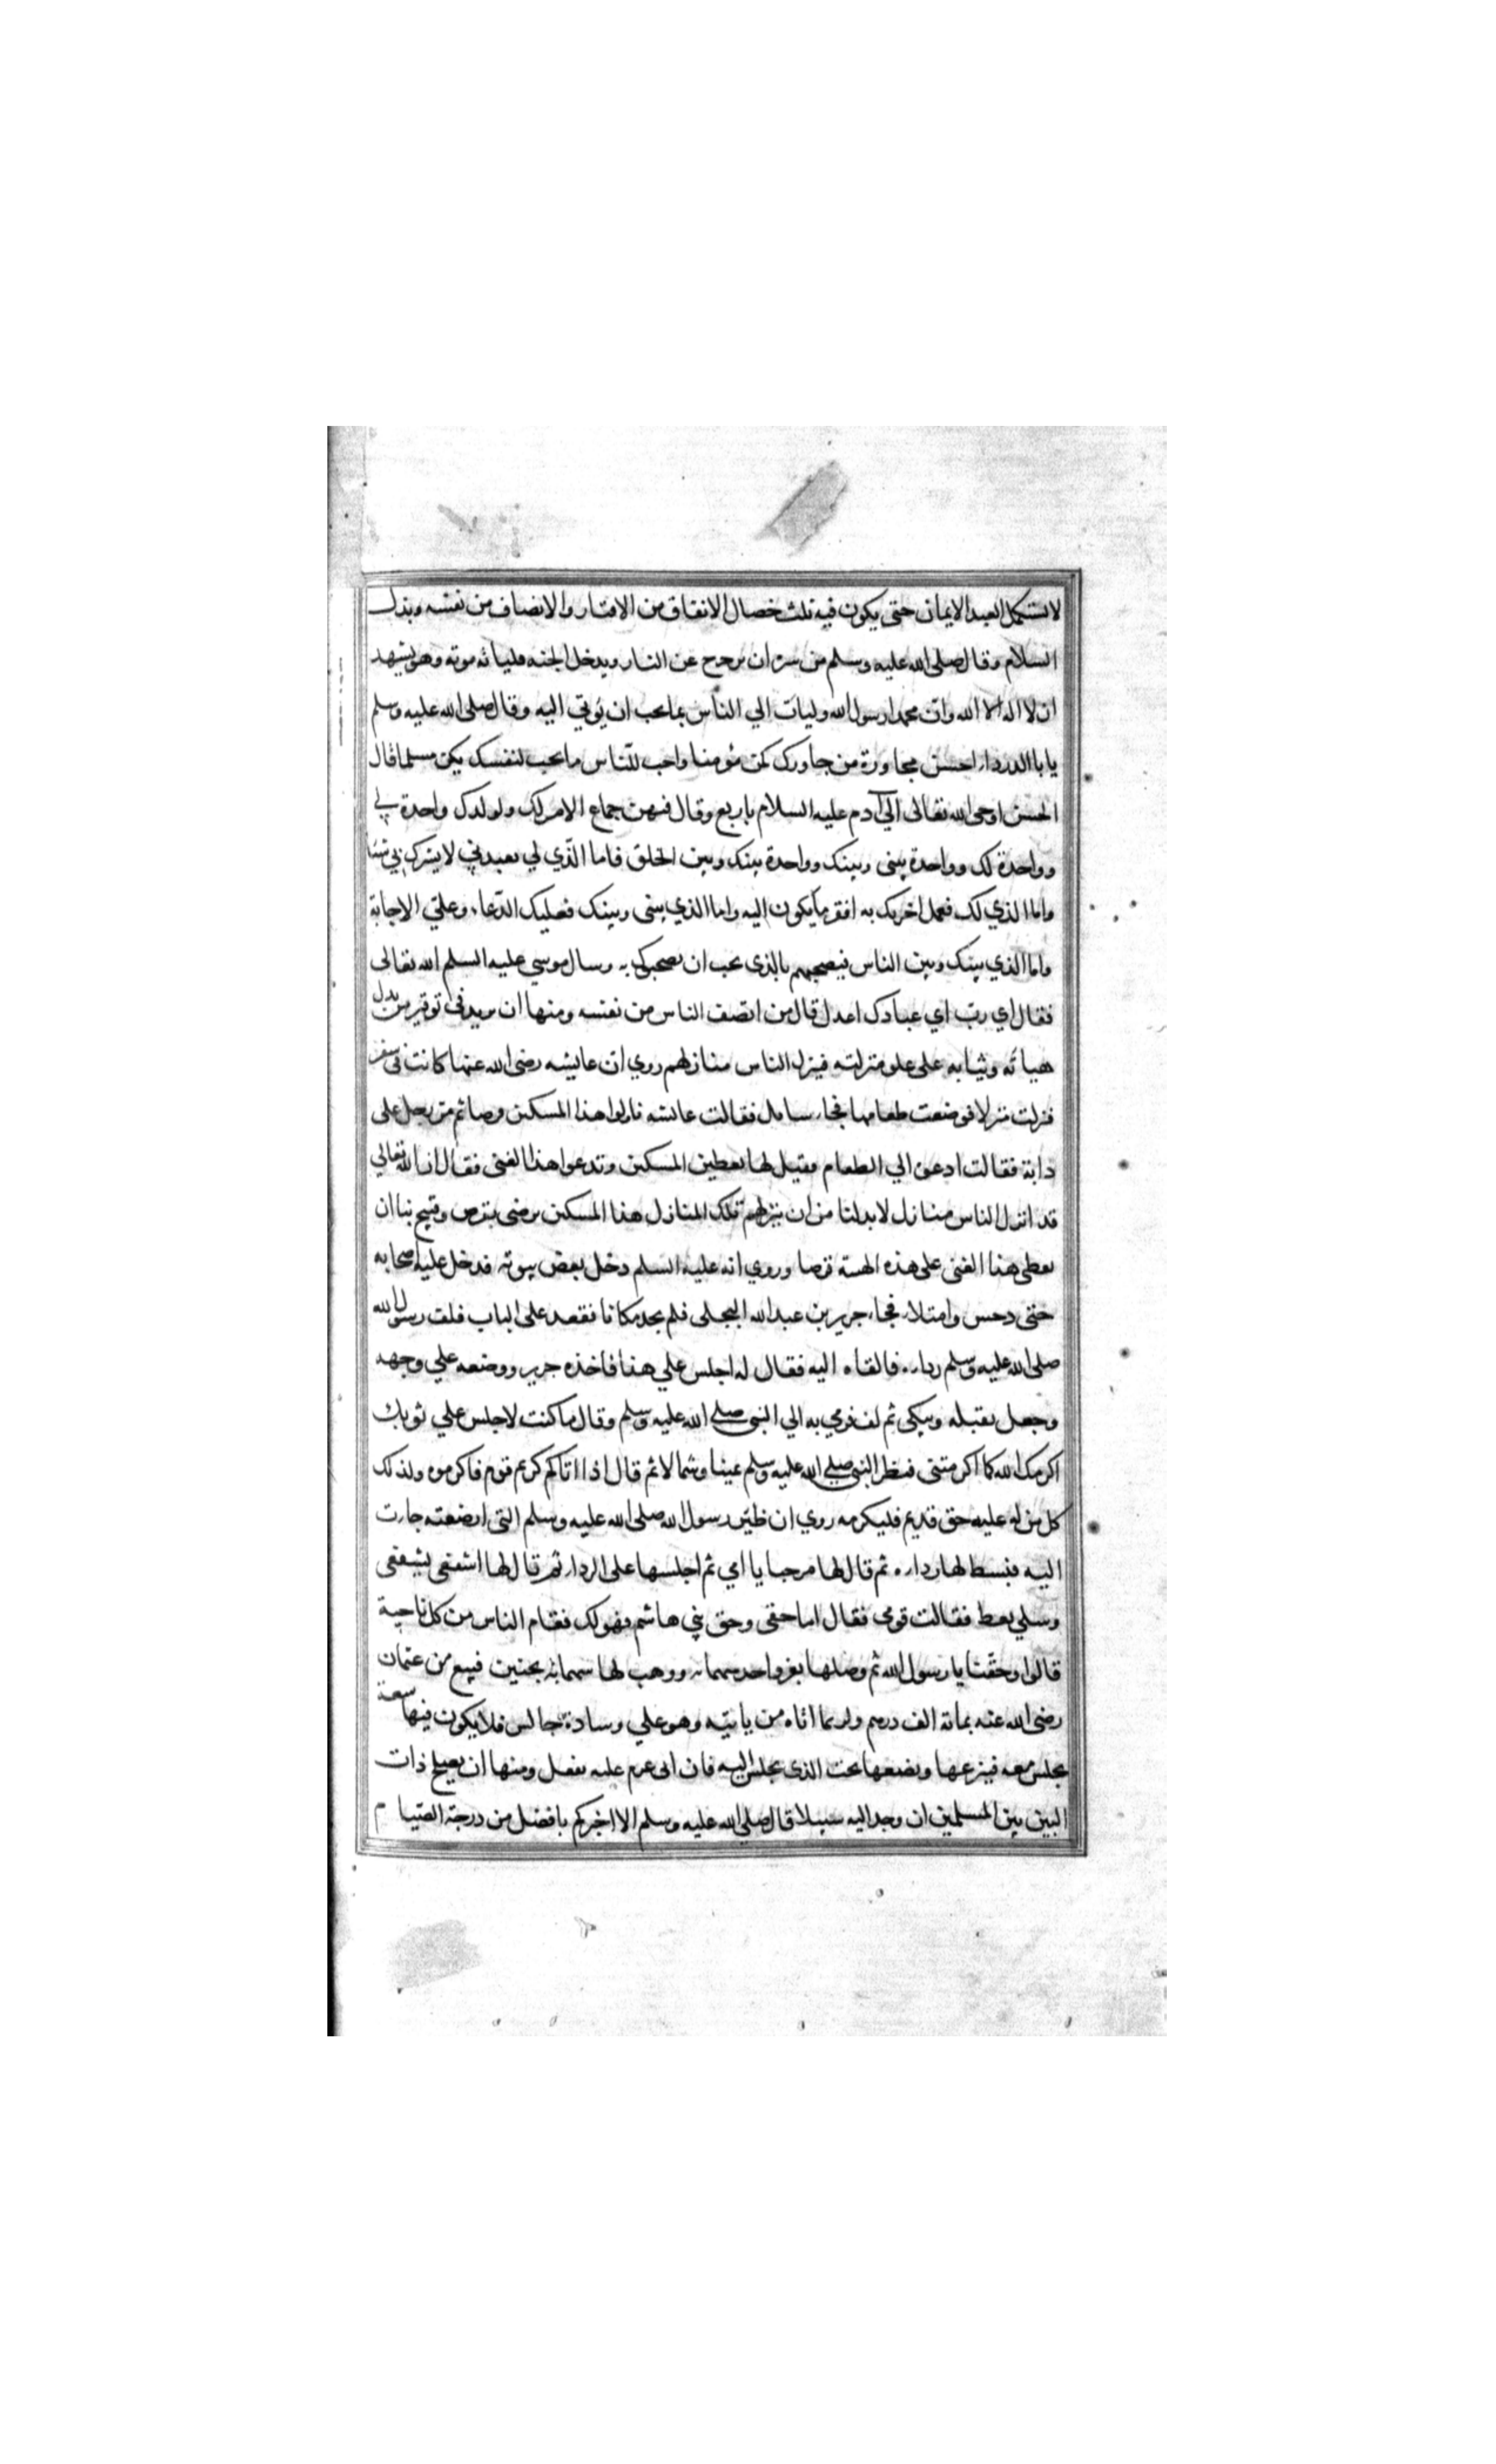 لا يستكمل العبد الايمان حتى يكون فيه ثلث خصال الانفاق من الاقتار والانصاف من نفسه وبذل
السلام وقال صلى الله عليه وسلم من سره ان يزحزح عن النار ويدخل الجنه فلياته موته وهو يشهد
ان لا اله الا الله وان محمدا رسول الله وليات الي الناس بما يحب ان يوتي اليه وقال صلى الله عليه وسلم
يا با الدرداء احسن مجاورة من جاورك تكن مؤمنا واحب للناس ما تحب لنفسك تكن مسلما قال
الحسن اوحى الله تعالى الي آدم عليه السلام باربع وقال فيهن جماع الامر لك ولولدك واحدة لي
وواحدة لك وواحدة بيني وبينك وواحدة بينك وبين الخلق فاما الذي لي تعبدني لا يشرك بي شيئا
واما الذي لك فعمل اخزيك به افقر ما يكون اليه واما الذي بيني وبينك فعليك الدعاء وعلي الاجابة
واما الذي بينك وبين الناس فيصحبهم بالذي تحب ان يصحبوك به وسال موسي عليه السلم الله تعالى
فقال اي رب اي عبادك اعدل قال من انصف الناس من نفسه ومنها ان يزيد في توقير من يدل
هياته وثيابه على علو منزلته فينزل الناس منازلهم روي ان عايشه رضى الله عنها كانت في سفر
فنزلت منزلا فوضعت طعامها فجاء سايل فقالت عائشه ناولوا هذا المسكين قرصا ثم مر رجل على
دابة فقالت ادعوه الي الطعام فقيل لها تعطين المسكين وتدعوا هذا الغنى فقال ان الله تعالي
قد انزل الناس منازل لا بد لنا من ان ننزلهم تلك المنازل هذا المسكين يرضى بقرص وقبيح بنا ان
نعطى هذا الغنى على هذه الهيئة قرصا وروي انه عليه السلم دخل بعض بيوته فدخل عليه اصحابه
حتى دحس وامتلا فجاء جرير بن عبدالله البجلى فلم يجد مكانا فقعد على الباب فلف رسول الله
صلى الله عليه وسلم رداءه فالقاه اليه فقال له اجلس علي هذا فاخذه جرير ووضعه علي وجهه
وجعل يقبله ويبكى ثم لف فرمي به الي النبى صلى الله عليه وسلم وقال ما كنت لاجلس علي ثوبك
اكرمك الله كما اكرمتنى فنظر النبى صلى الله عليه وسلم يمينا وشمالا ثم قال اذا اتاكم كريم قوم فاكرموه ولذلك
كل من له عليه حق قديم فليكرمه روي ان ظئر رسول الله صلى الله عليه وسلم التى ارضعته جاءت
اليه فبسط لها رداءه ثم قال لها مرحبا يا امي ثم اجلسها على الرداء ثم قال لها اشفعى تشفعى
وسلي تعط فقالت قومى فقال اما حقى وحق بني هاشم فهو لك فقام الناس من كل ناحية
قالوا وحقنا يا رسول الله ثم وصلها بعد واخدمها ووهب لها سهمانه بحنين فبيع من عثمان
رضى الله عنه بمائة الف درهم ولربما اتاه من ياتيه وهو علي وسادة جالس فلا يكون فيها سعة
يجلس معه فينزعها ويضعها تحت الذى يجلس اليه فان ابى عزم عليه بفعل ومنها ان يصلح ذات
البين بين المسلمين ان وجد اليه سبيلا قال صلى الله عليه وسلم الا اخبركم بافضل من درجة الصيام